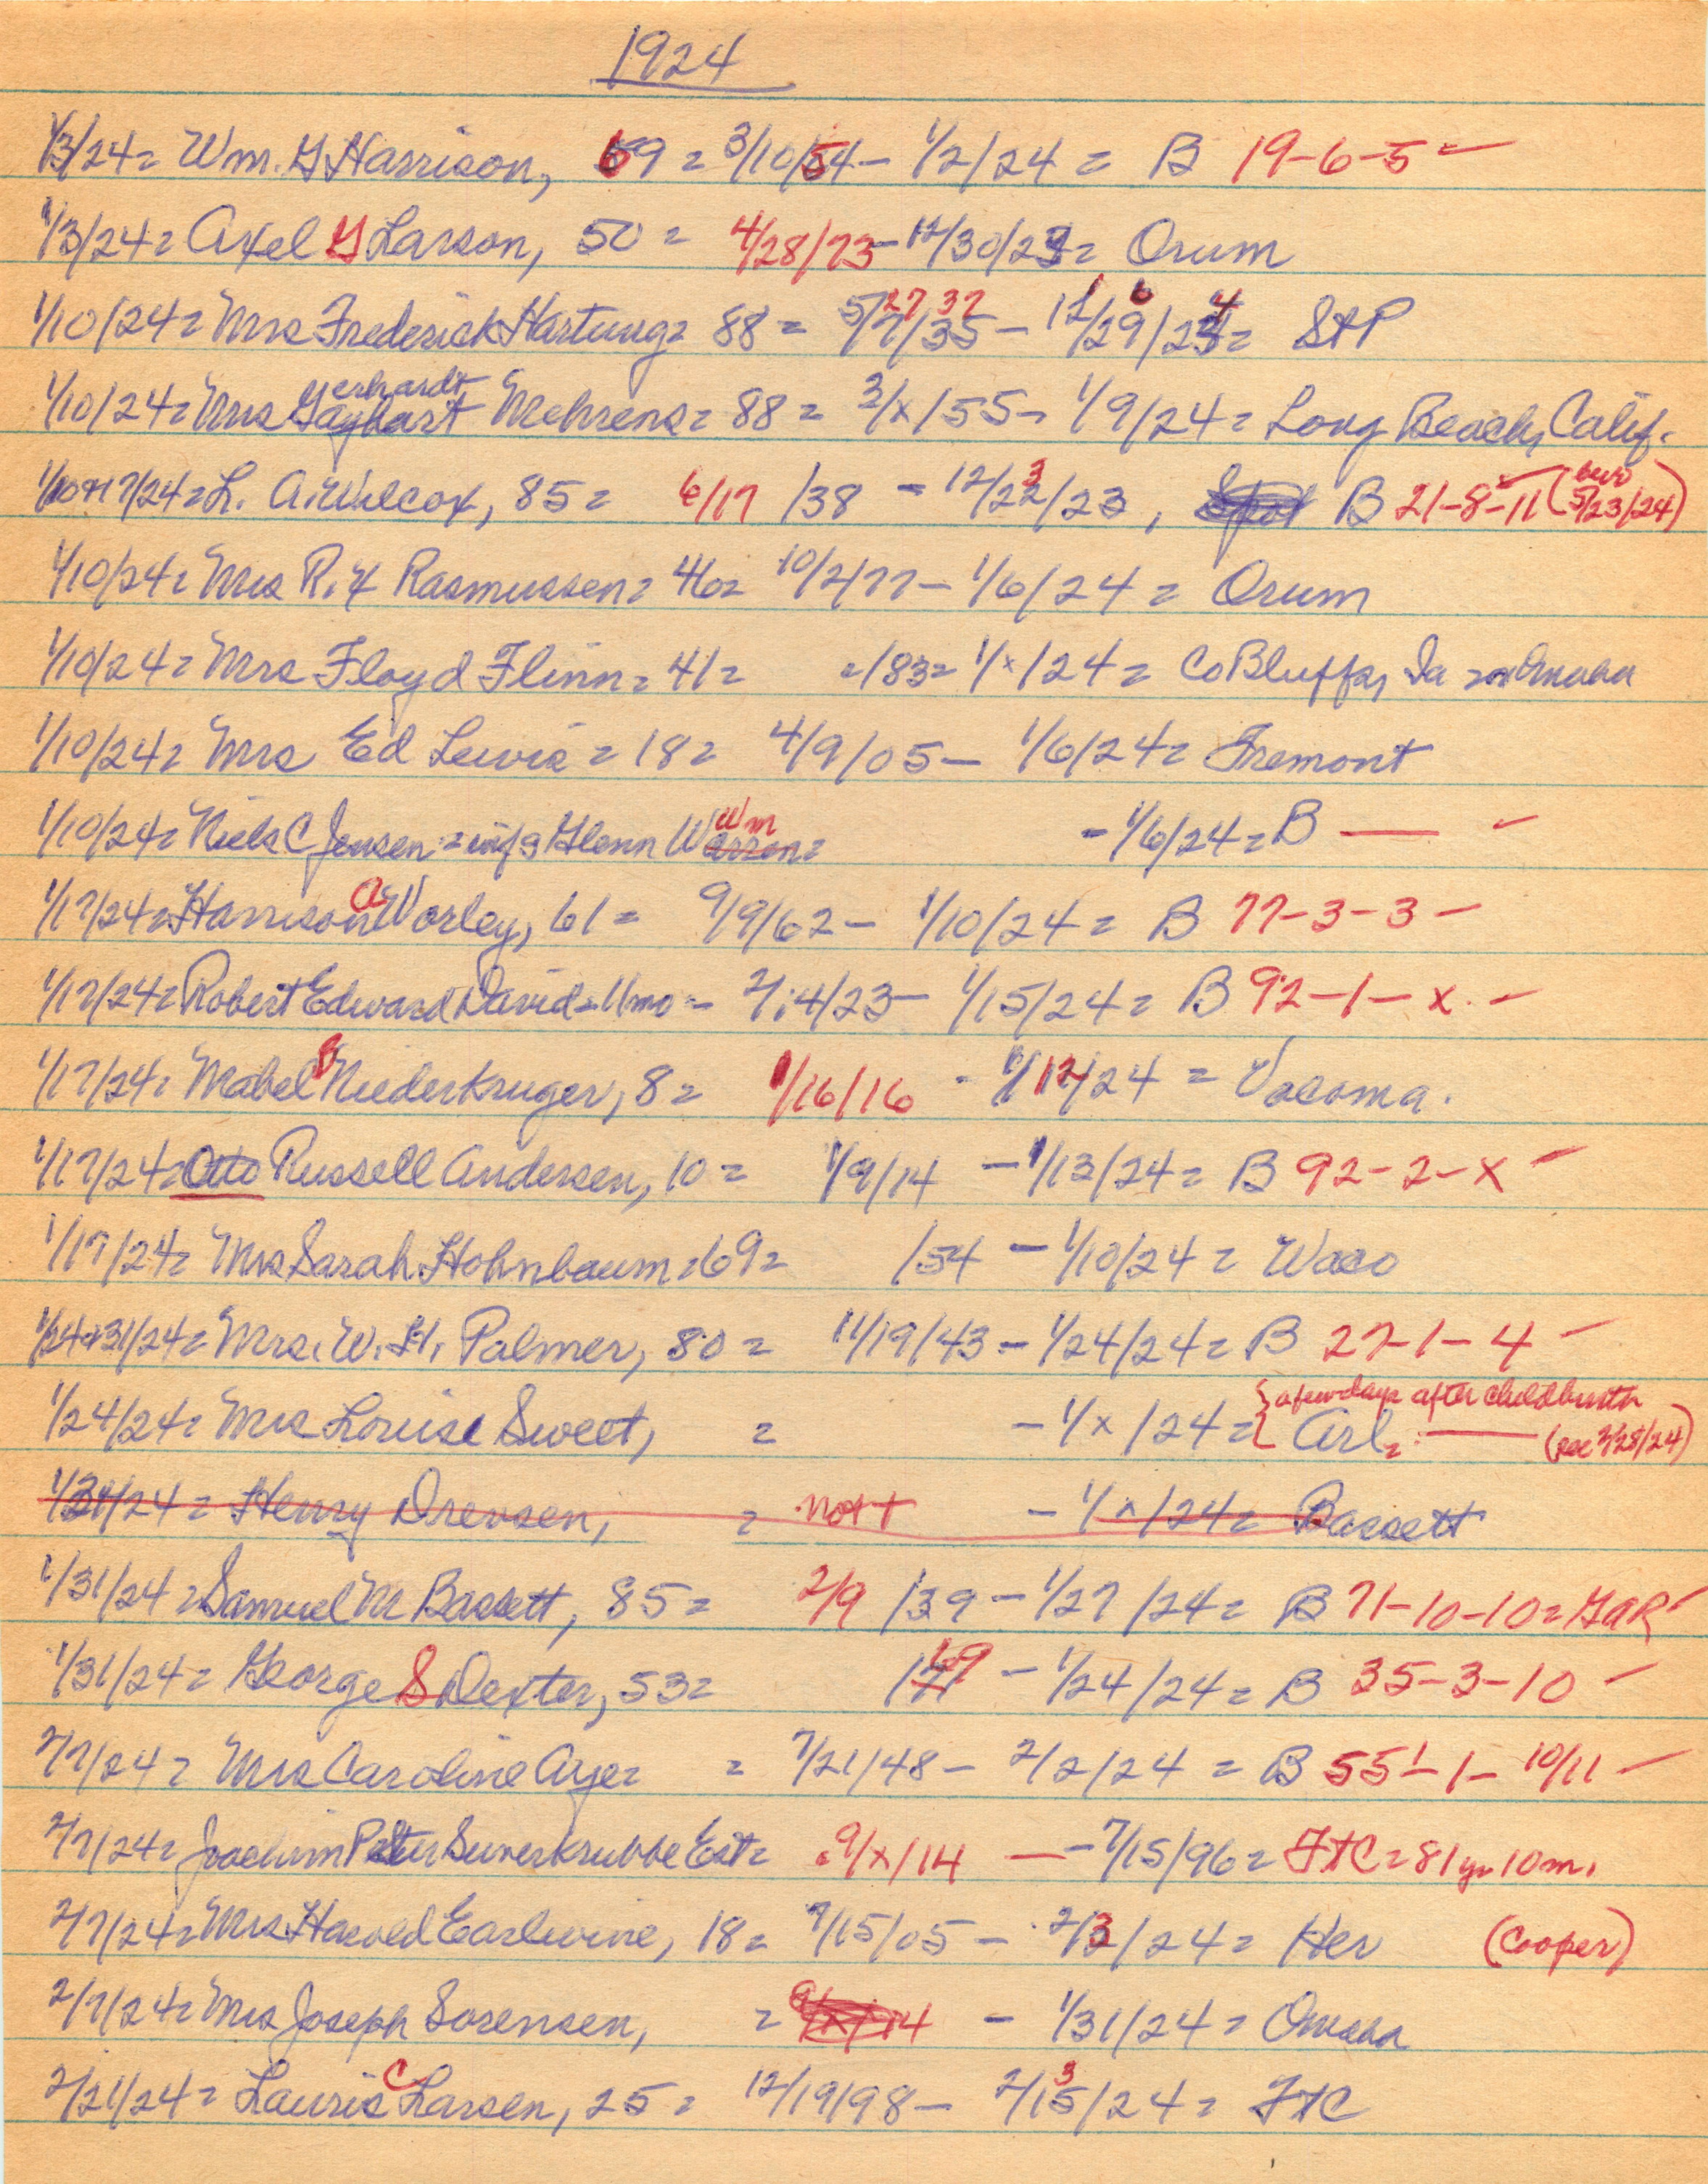 1924
1/3/24= Wm. G Harrison, 69 = 3/10/54 - 1/2/24 = B 19-6-5 -
1/3/24= Axel G Larson, 50 = 4/28/73 - 12/30/23= Orum
1/10/24= Mrs Frederick Hartung= 88 = 5/7/35 27 37 - 12/29/23 1 6 4 = StP
1/10/24= Mrs Gayhart erhardt Mehrens= 88 = 3/x/55 - 1/9/24= Long Beach, Calif.
1/10+17/24= L. A. Wilcox, 85 = 6/17 /38 - 12/23/23, Spot B 21-8-11 (bur 5/23/24)
1/10/24= Mrs R. H Rasmussen= 46= 10/2/77 - 1/6/24 = Orum
1/10/24= Mrs Floyd Flinn= 41= =/83= 1/x/24 = Co Bluffs, Ia = or Omaha
1/10/24= Mrs Ed Lewis = 18= 4/9/05 - 1/6/24= Fremont
1/10/24= Niels C Jensen = inf g Glenn Warren Wm = - 1/6/24= B — -
1/17/24= Harrison A Worley, 61 = 9/9/62 - 1/10/24 = B 77-3-3 -
1/17/24= Robert Edward David = 11mo - 2/14/23 - 1/15/24 = B 92-1-x. -
1/17/24= Mabel B Niederkruger, 8 = 1/16/16 - 1/12/24 = Vacoma.
1/17/24= Otto Russell Andersen, 10 = 1/9/14 - 1/13/24 = B 92-2-X -
1/17/24= Mrs Sarah Hohnbaum = 69= /54 - 1/10/24 = Waco
1/24+31/24= Mrs. W. H. Palmer, 80 = 11/19/43 - 1/24/24= B 27-1-4 -
1/24/24= Mrs Louise Sweet, = - 1/x/24 = { a few days after childbirth Arl= — (see 2/28/24)
1/31/24 = Henry Drevsen, = not + - 1/x/24= Bassett
1/31/24 = Samuel M Bassett, 85 = 2/9 /39 - 1/27/24 = B 71-10-10= GAR
1/31/24= George S Dexter, 53= /71 69 - 1/24/24 = B 35-3-10 -
2/7/24 = Mrs Caroline Aye= = 7/21/48 - 2/2/24 = B 55-1-10/11 -
2/7/24= Joachim Peter Suverkrubbe Est= 9/x/14 — - 7/15/96= FtC = 81 yr 10 m.
2/7/24= Mrs Harold Earlwine, 18= 7/15/05 - 2/3/24= Her (Cooper)
2/7/24= Mrs Joseph Sorensen, = 9/x/14 - 1/31/24 = Omaha
2/21/24= Lauris C Larsen, 25 = 12/19/98 - 2/15 3/24= FtC